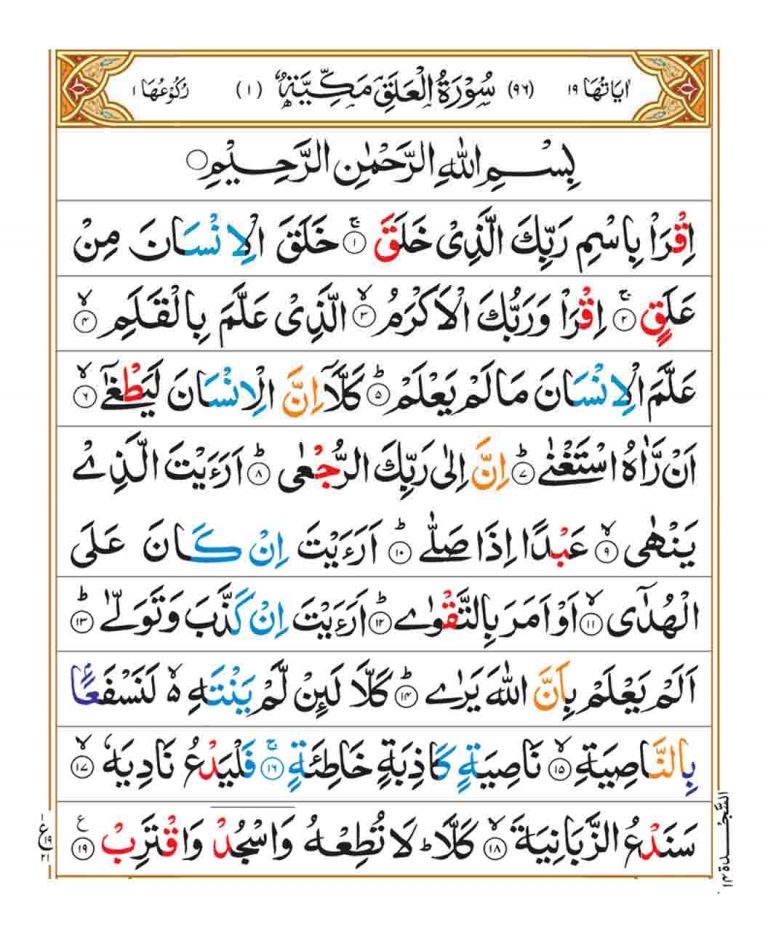 اٰيَاتُهَا ١٩ (٩٦) سُوْرَةُ الْعَلَقِ مَكِّيَّةٌ (١) رُكُوْعُهَا ١
بِسْمِ اللّٰهِ الرَّحْمٰنِ الرَّحِيْمِ
اِقْرَاْ بِاسْمِ رَبِّكَ الَّذِىْ خَلَقَ ۚ‏ ﴿۱﴾ خَلَقَ الْاِنْسَانَ مِنْ
عَلَقٍ‌ۚ‏ ﴿۲﴾ اِقْرَاْ وَرَبُّكَ الْاَكْرَمُۙ‏ ﴿۳﴾ الَّذِىْ عَلَّمَ بِالْقَلَمِۙ‏ ﴿۴﴾
عَلَّمَ الْاِنْسَانَ مَا لَمْ يَعْلَمْؕ‏ ﴿۵﴾ كَلَّاۤ اِنَّ الْاِنْسَانَ لَيَطْغٰٓىۙ‏ ﴿۶﴾
اَنْ رَّاٰهُ اسْتَغْنٰىؕ‏ ﴿۷﴾ اِنَّ اِلٰى رَبِّكَ الرُّجْعٰىؕ‏ ﴿۸﴾ اَرَءَيْتَ الَّذِىْ
يَنْهٰىۙ‏ ﴿۹﴾ عَبْدًا اِذَا صَلّٰىؕ‏ ﴿۱۰﴾ اَرَءَيْتَ اِنْ كَانَ عَلَى
الْهُدٰٓىۙ‏ ﴿۱۱﴾ اَوْ اَمَرَ بِالتَّقْوٰىؕ‏ ﴿۱۲﴾ اَرَءَيْتَ اِنْ كَذَّبَ وَتَوَلّٰىؕ‏ ﴿۱۳﴾
اَلَمْ يَعْلَمْ بِاَنَّ اللّٰهَ يَرٰىؕ‏ ﴿۱۴﴾ كَلَّا لَئِنْ لَّمْ يَنْتَهِ ۙ لَنَسْفَعًۢا
بِالنَّاصِيَةِۙ‏ ﴿۱۵﴾ نَاصِيَةٍ كَاذِبَةٍ خَاطِئَةٍ‌ ۚ‏ ﴿۱۶﴾ فَلْيَدْعُ نَادِيَهٗ ۙ‏ ﴿۱۷﴾
سَنَدْعُ الزَّبَانِيَةَ ۙ‏ ﴿۱۸﴾ كَلَّا ؕ لَا تُطِعْهُ وَاسْجُدْ وَاقْتَرِبْ ﴿۱۹﴾ ع
السَّجْدَة ١٤
ع ١٩ ٢١